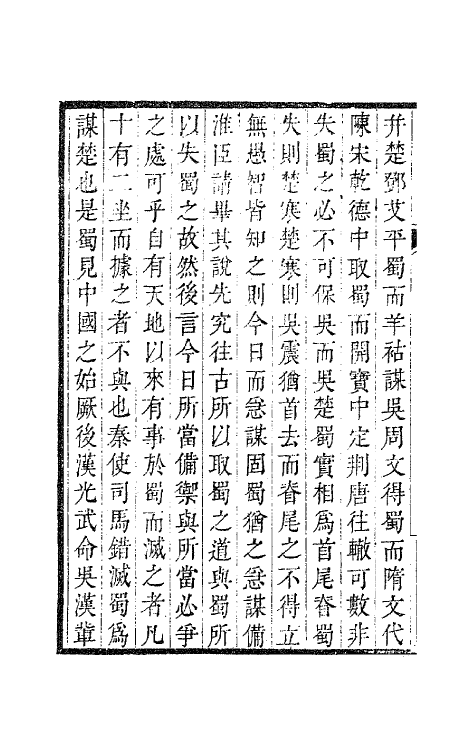 幷楚鄧艾平蜀而羊祜謀吳周文得蜀而隋文代
陳宋乾德中取蜀而開寶中定荆唐往轍可數非
失蜀之必不可保吳而吳楚蜀實相爲首尾脊蜀
失則楚寒楚寒則吳震猶首去而脊尾之不得立
無愚智皆知之則今日而急謀固蜀猶之急謀備
淮臣請畢其說先究往古所以取蜀之道與蜀所
以失蜀之故然後言今日所當備禦與所當必爭
之處可乎自有天地以來有事於蜀而滅之者凡
十有二坐而據之者不與也秦使司馬錯滅蜀爲
謀楚也是蜀見中國之始厥後漢光武命吳漢輩